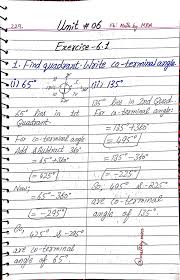 229. Unit # 06
Exercise - 6.1
1. Find quadrant. Write co-terminal angle.
(i) 65°
65° lies in 1st
Quadrant.
For co-terminal angle
Add & Subtract 360°
= 65° + 360°
= 425°
Now;
= 65° - 360°
= -295°
So, 425° & -295
are co-terminal
angle of 65°.
(ii) 135°
135° lies in 2nd Quad.
For co-terminal angle:
= 135° + 360°
= 495°
= 135° - 360°
= -225°
So, 495 & -225
are co-terminal
angle of 135°.